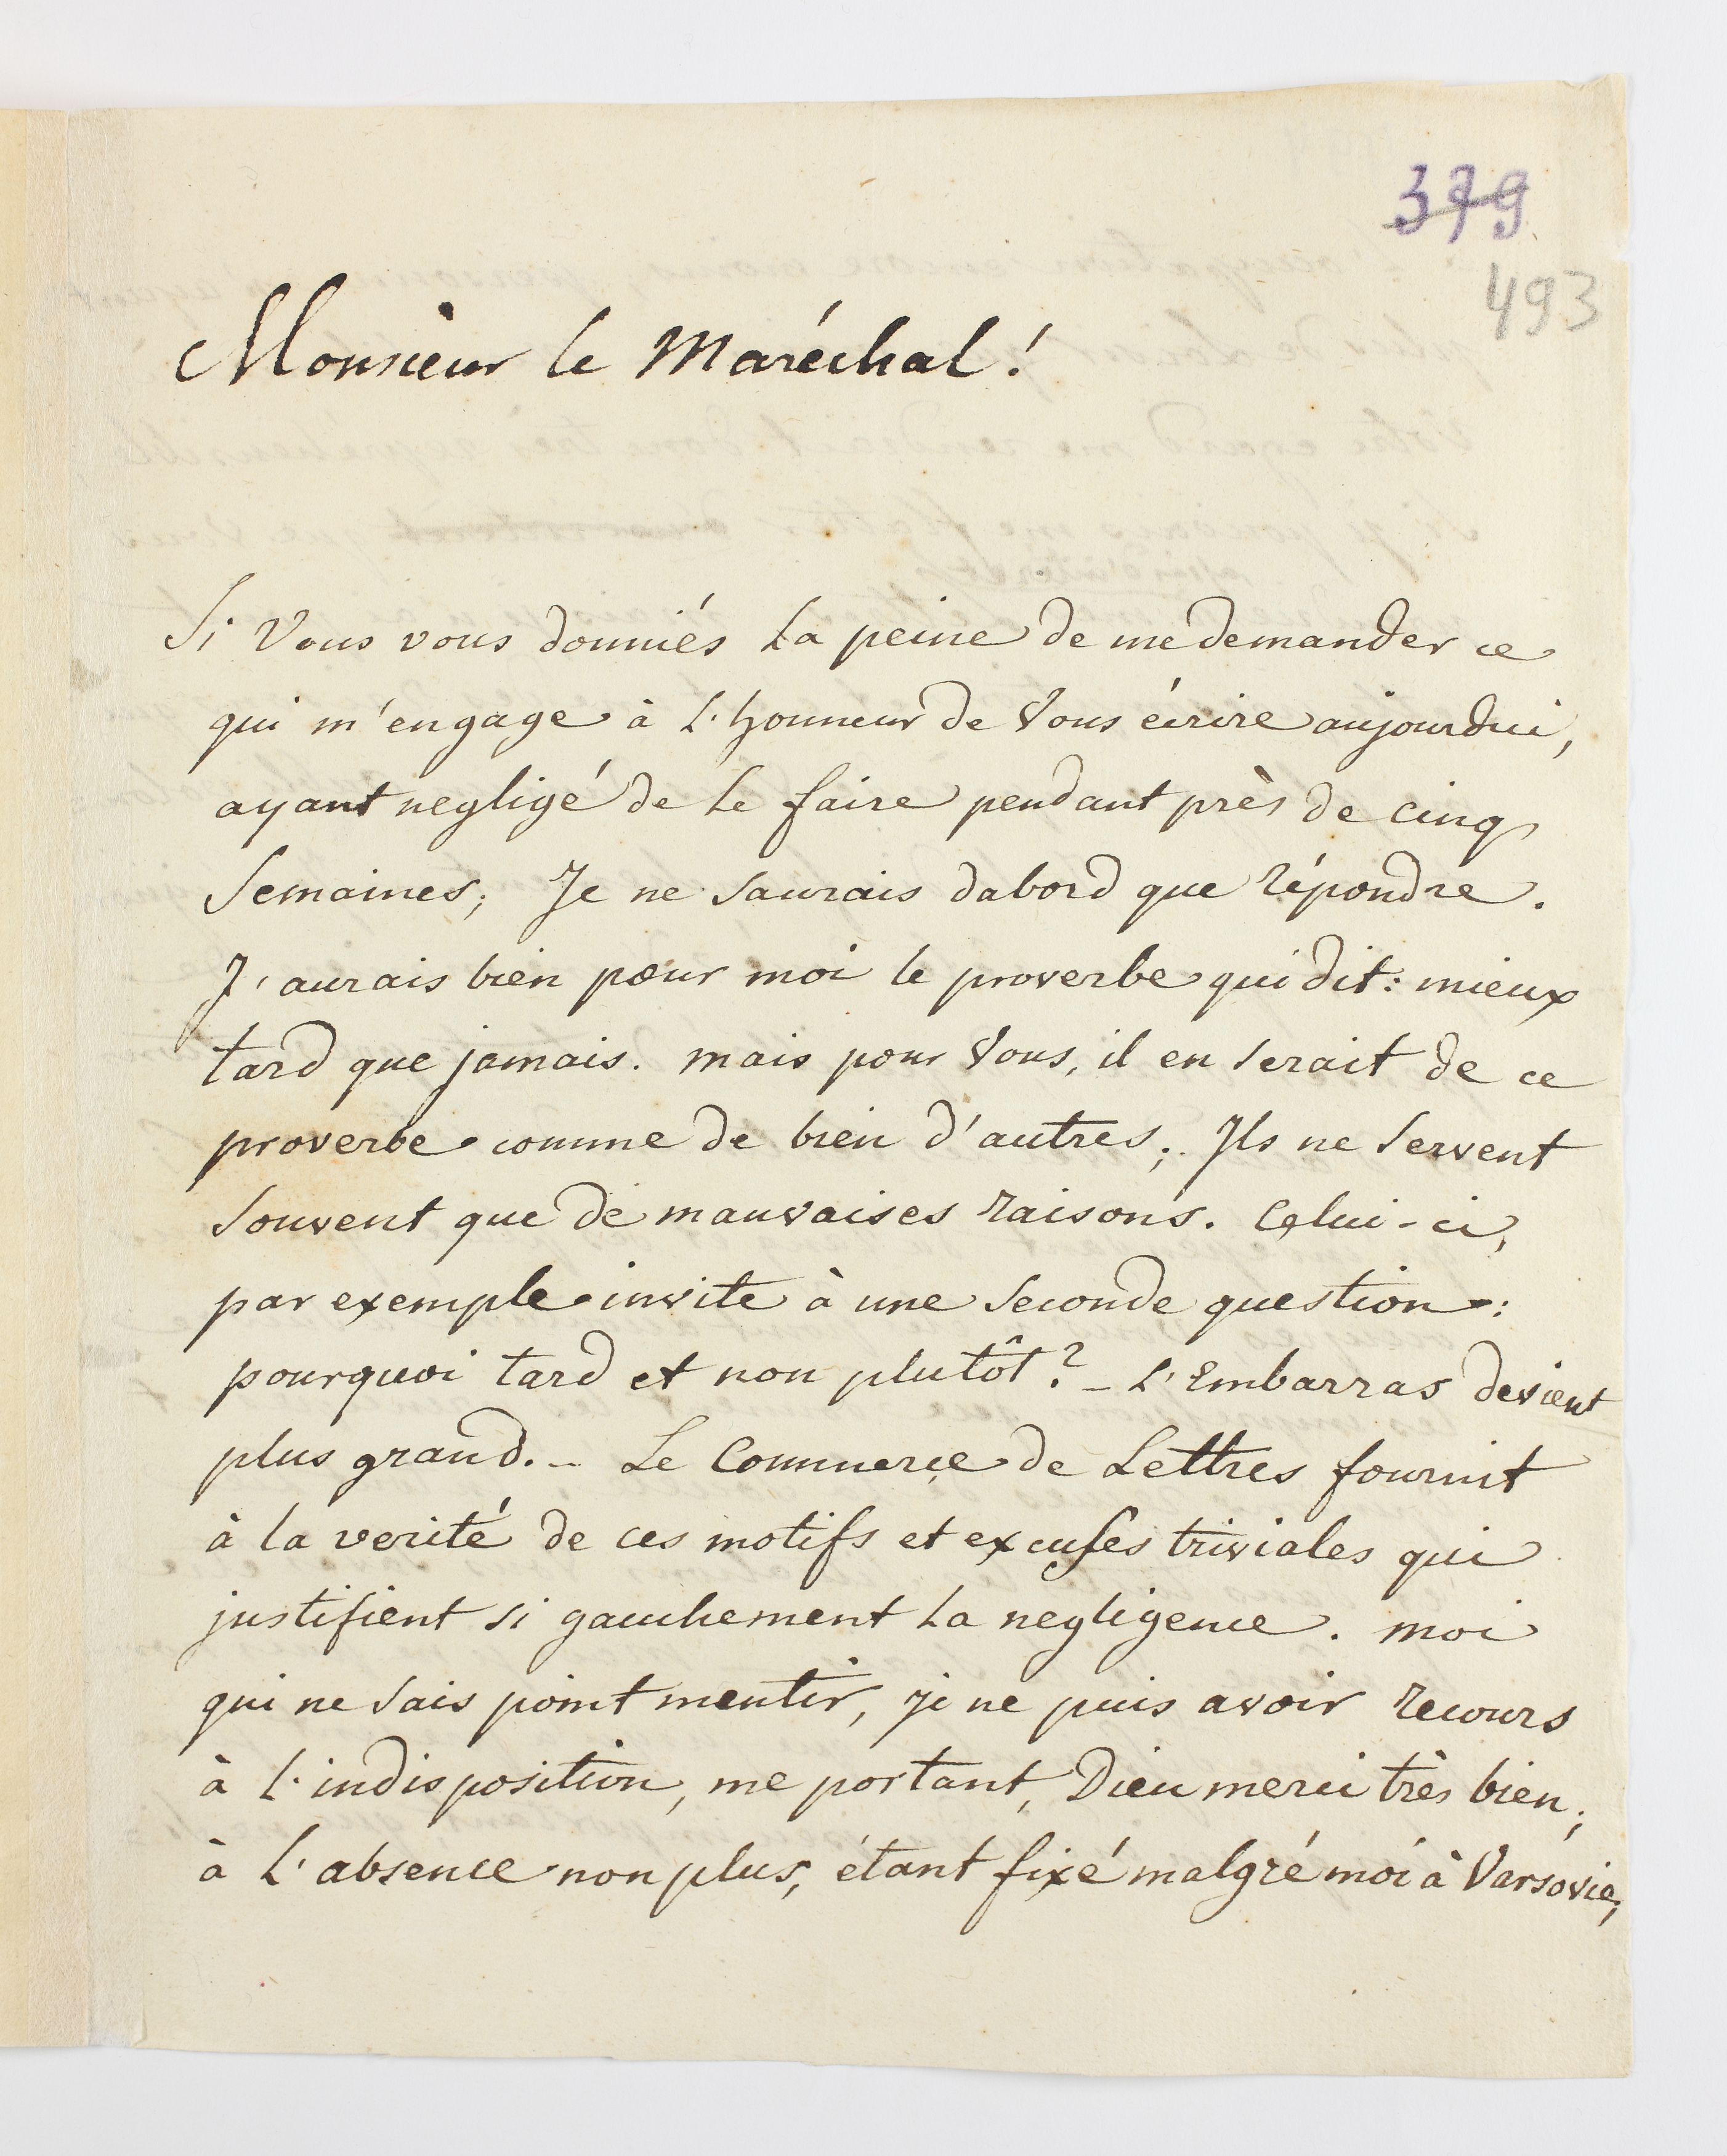 379
493
Monsieur le Maréchal!
Si Vous vous donniés la peine de me demander ce
qui m'engage à l'honneur de Vous écrire aujourdui,
ayant negligé de le faire pendant près de cinq
Semaines; Je ne saurais dabord que répondre.
J'aurais bien pour moi le proverbe qui dit: mieux
tard que jamais. mais pour Vous, il en serait de ce
proverbe comme de bien d'autres; Ils ne servent
souvent que de mauvaises raisons. Celui-ci,
par exemple invite à une seconde question:
pourquoi tard et non plutôt? - L'Embarras devient
plus grand. - Le Commerce de Lettres fournit
à la verité de ces motifs et excuses triviales qui
justifient si gauchement la negligence. moi
qui ne sais point mentir, je ne puis avoir recours
à l'indisposition, me portant, Dieu merci très bien;
à l'absence non plus, étant fixé malgré moi à Varsovie;